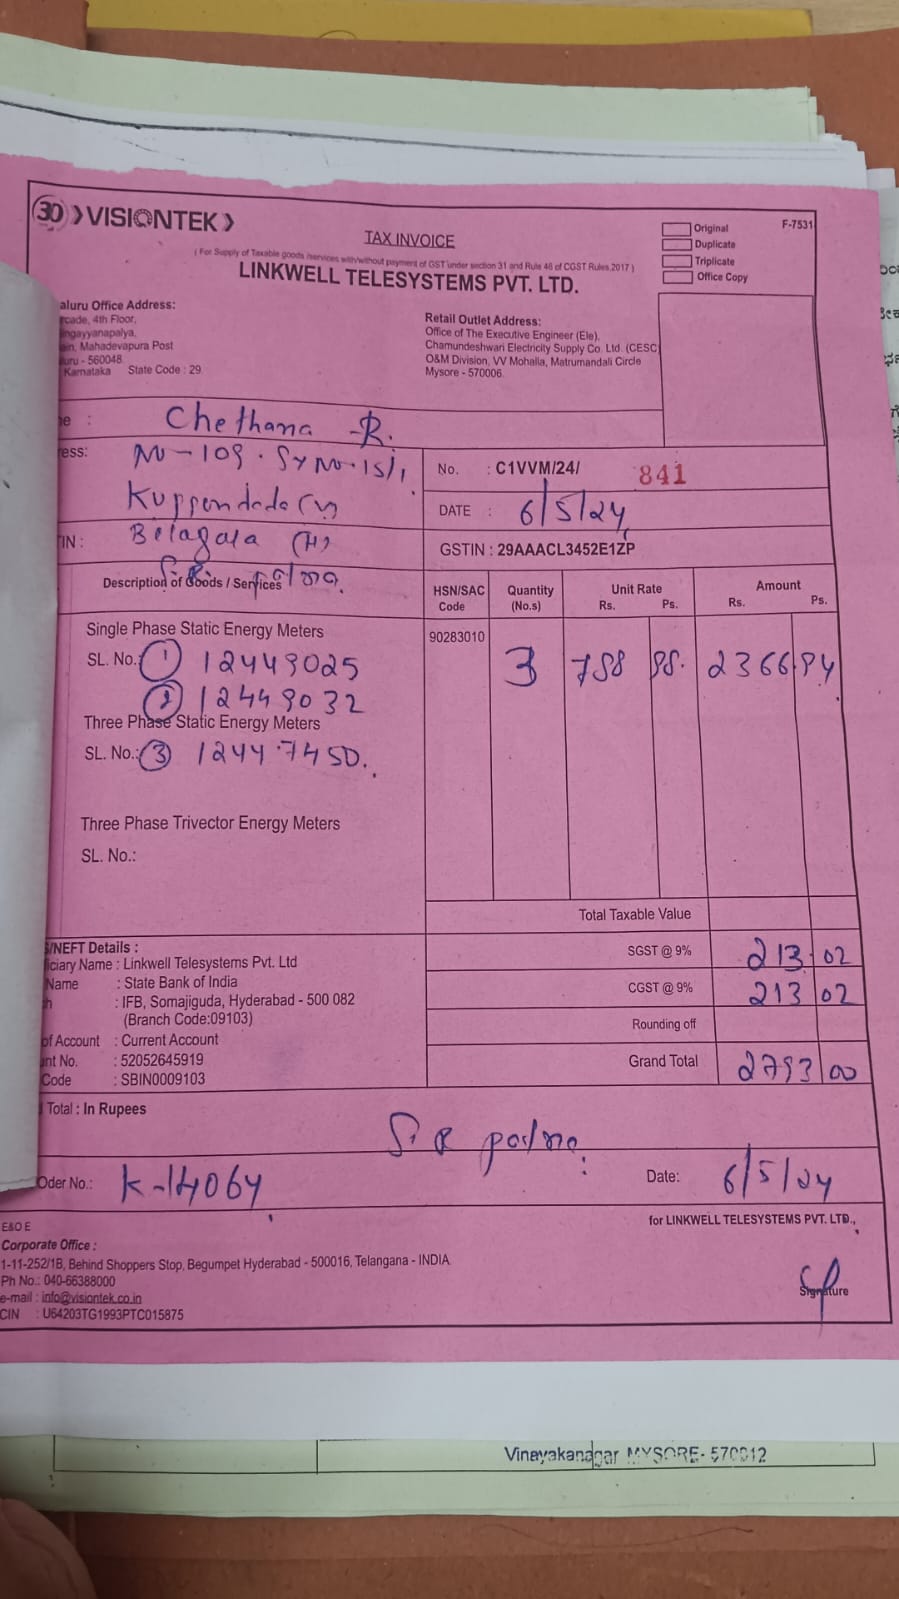 30 VISIONTEK
TAX INVOICE
( For Supply of Taxable goods /services with/without payment of GST under section 31 and Rule 46 of CGST Rules,2017 )
LINKWELL TELESYSTEMS PVT. LTD.
Original
Duplicate
Triplicate
Office Copy
F-7531
aluru Office Address:
rcade, 4th Floor,
ingayyanapalya,
ain, Mahadevapura Post
uru - 560048
Karnataka State Code : 29
Retail Outlet Address:
Office of The Executive Engineer (Ele),
Chamundeshwari Electricity Supply Co. Ltd. (CESC)
O&M Division, VV Mohalla, Matrumandali Circle
Mysore - 570006
e : Chethana -R.
ress: No-109. Sy No.15/1,
Belagala (H)
TIN :
No. : C1VVM/24/ 841
DATE : 6/5/24
GSTIN : 29AAACL3452E1ZP
Description of Goods / Services
HSN/SAC Code
Quantity (No.s)
Unit Rate Rs. Ps.
Amount Rs. Ps.
Single Phase Static Energy Meters
90283010 3 788 98. 2366 94
SL. No.: 1 12449025
2 12449032
Three Phase Static Energy Meters
SL. No.: 3 12447450.
Three Phase Trivector Energy Meters
SL. No.:
Total Taxable Value
SGST @ 9% 213 02
CGST @ 9% 213 02
Rounding off
Grand Total 2793 00
/NEFT Details :
iciary Name : Linkwell Telesystems Pvt. Ltd
Name : State Bank of India
h : IFB, Somajiguda, Hyderabad - 500 082
(Branch Code:09103)
of Account : Current Account
nt No. : 52052645919
Code : SBIN0009103
Total : In Rupees
Oder No.: K-14064
Date: 6/5/24
for LINKWELL TELESYSTEMS PVT. LTD.,
Signature
E&O E
Corporate Office :
1-11-252/1B, Behind Shoppers Stop, Begumpet Hyderabad - 500016, Telangana - INDIA
Ph No.: 040-66388000
e-mail : info@visiontek.co.in
CIN : U64203TG1993PTC015875
Vinayakanagar MYSORE- 570012